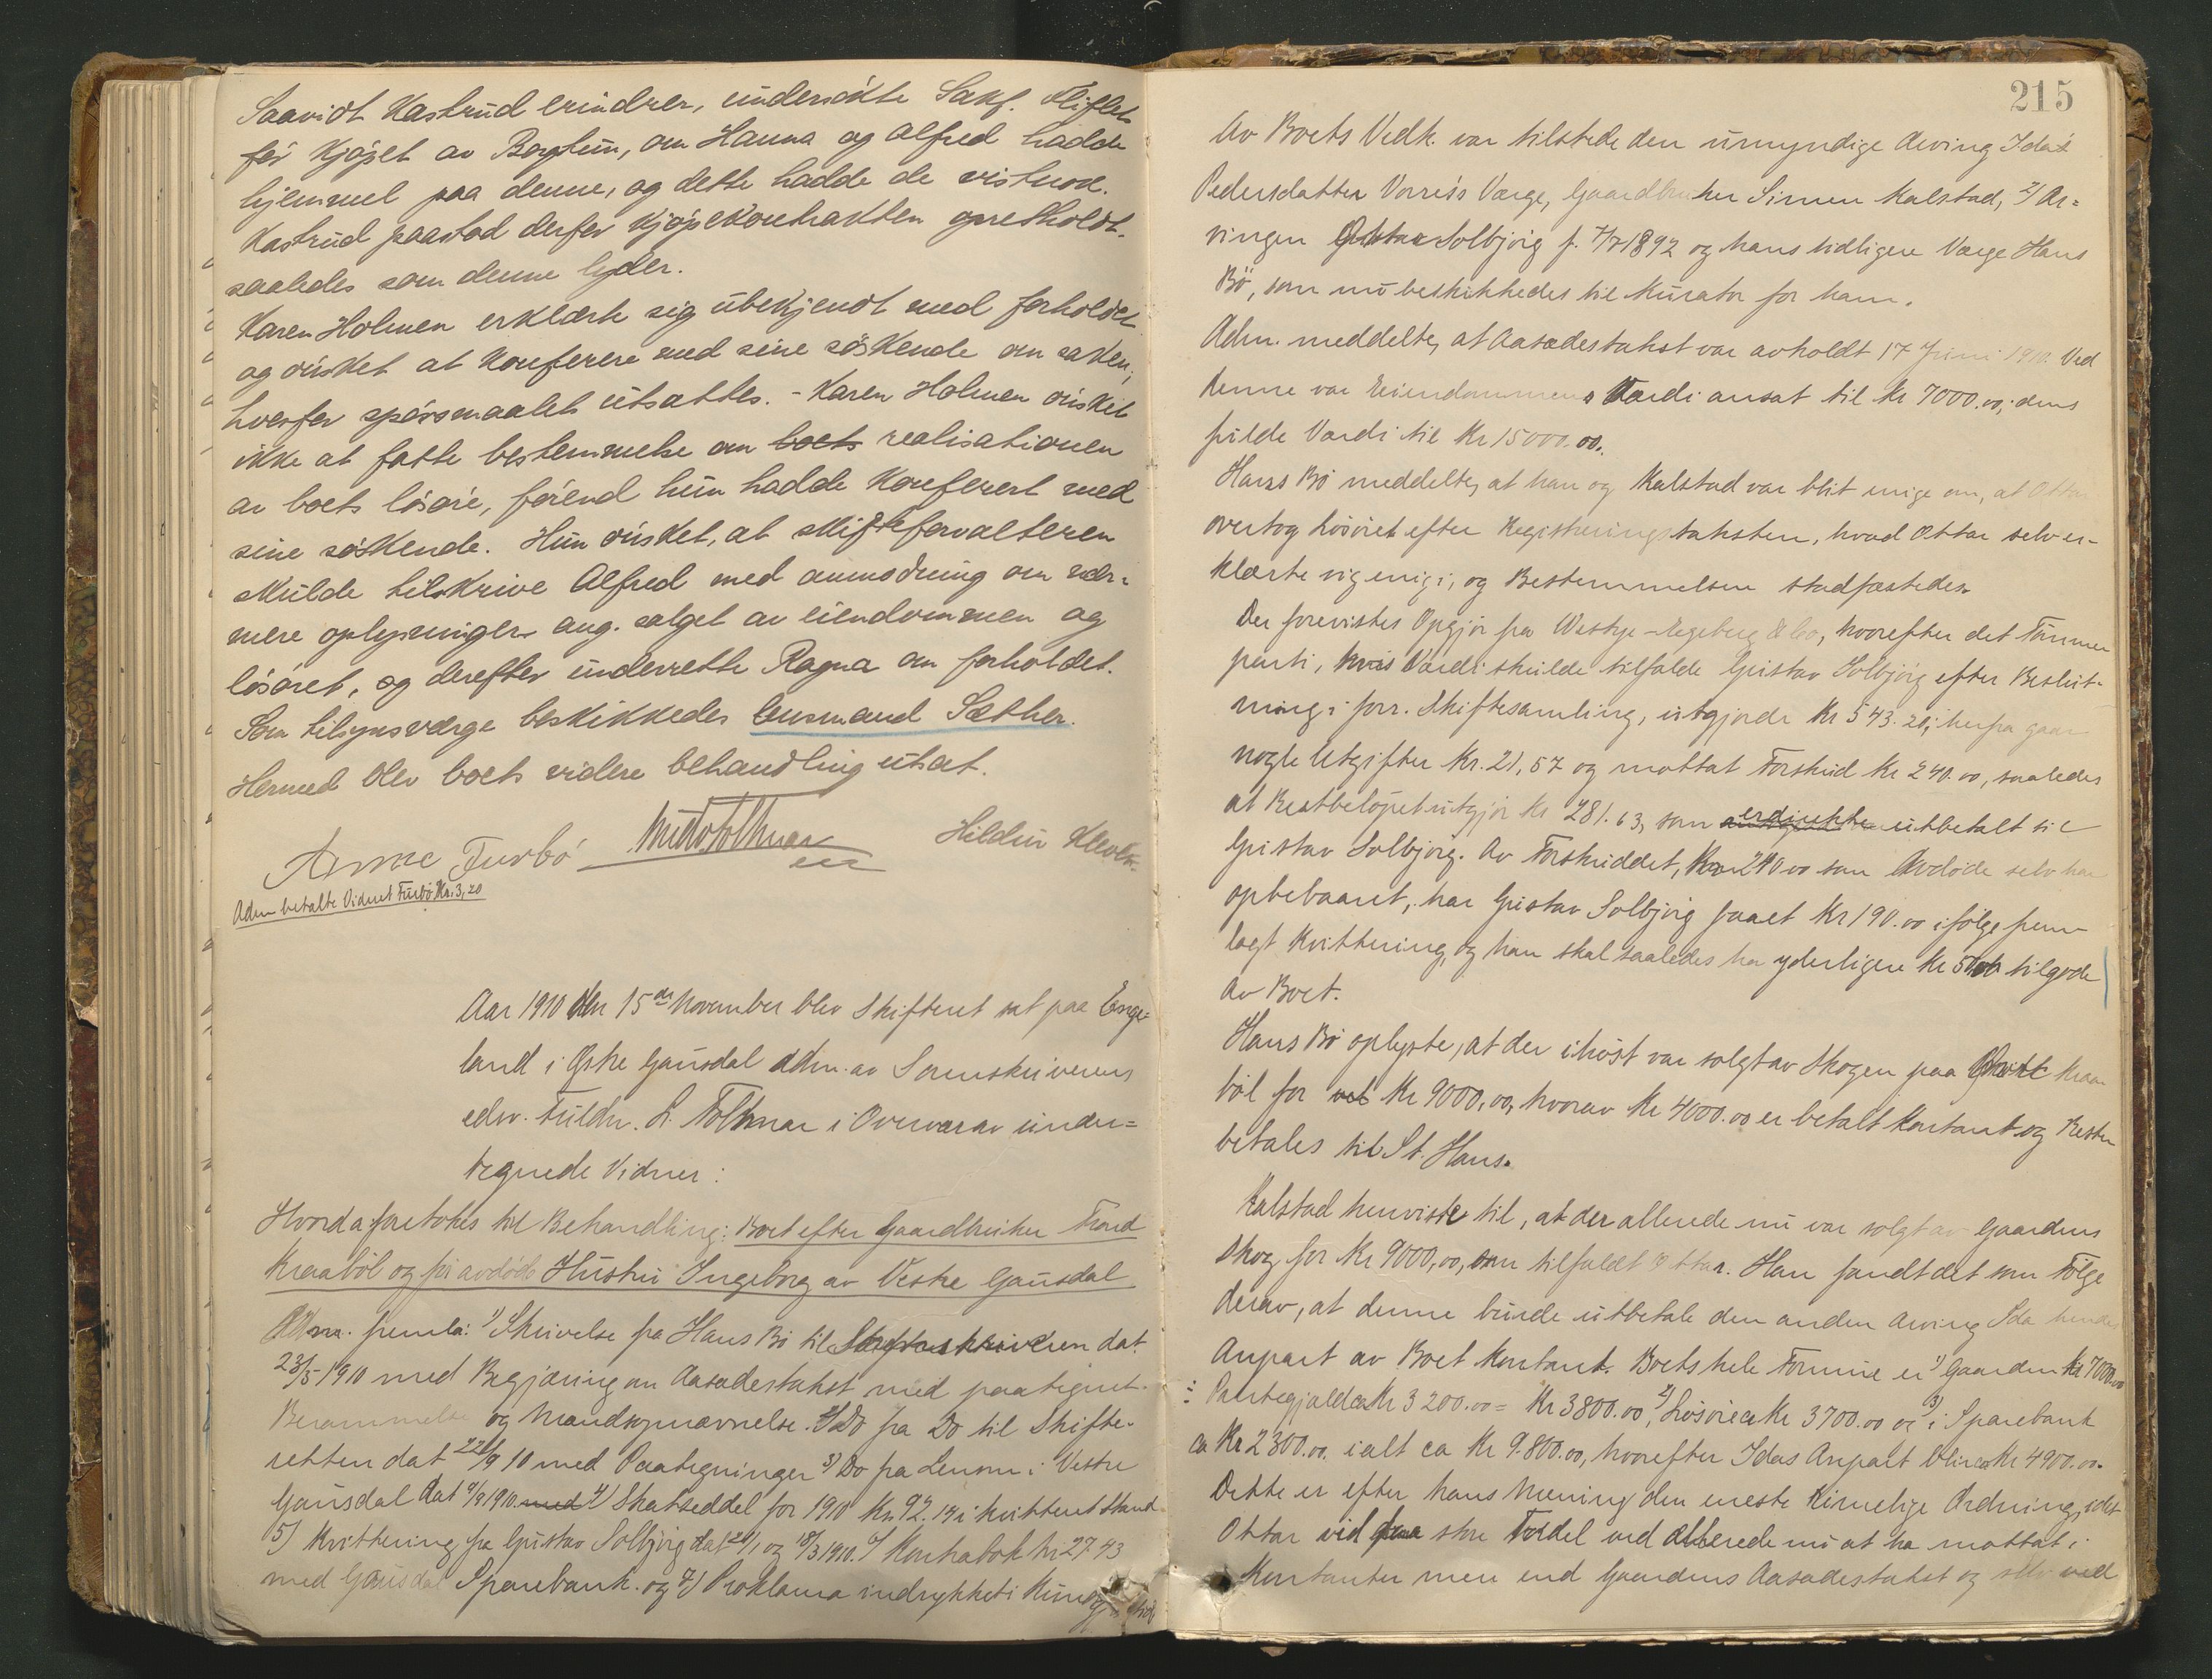 Saavidt Kastrud erindrer, undersökte Sakf. Fliflet
för kjöpet av Borgheim, om Hanna og Alfred hadde
hjemmel paa denne, og dette hadde de vistnok.
Kastrud paastod derfor kjöpekontrakten opretholdt.
saaledes som denne lyder.
Karen Holmen erklærte sig ubekjendt med forholdet
og önsket at konferere med sine söskende om saken;
hvorfor spörsmaalet utsattes. - Karen Holmen önsket
ikke at fatte bestemmelse om boets realisationen
av boets lösöre, förend hun hadde konferert med
sine söskende. Hun önsket, at skifteforvalteren
skulde tilskrive Alfred med anmodning om nær-
mere oplysninger ang. salget av eiendommen og
lösöret, og derefter underrette Ragna om forholdet.
Som tilsynsværge beskikkedes lensmand Sæther.
Hermed blev boets videre behandling utsat.
Arne Furbö Hildur
Adm betalte Vidnet Furbö Kr. 3,20
Aar 1910 den 15de November blev Skifteret sat paa Enge-
land i Östre Gausdal adm. av Sorenskriverens
edsv. Fuldm. L. Tolknar i Overvær av under-
tegnede Vidner:
Hvorda foretokes til Behandling: Boet efter Gaardbruker Trond
Kraaböl og før avdöde Hustru Ingeborg av Vestre Gausdal
Adm. fremla: 1) Skrivelse fra Hans Bö til Sorenskriveren dat.
23/5 1910 med Begjæring om Aasædestakst med paategnet
Berammelse og Mandsopnævnelse. 2) Do fra Do til Skifte-
retten dat 22/9 10 med Paategninger 3) Do fra Lensm i Vestre
Gausdal dat /9 1910 med 4) Skatseddel for 1910 Kr. 92. i kvitteret Stand
5) Kvittering fra Gustav Solbjörg dat 24/1 og 18/3 1910. 6) Kontrabok Nr 2743
med Gausdal Sparebank. og 7) Proklama indrykket i
215
Av Boets Vedk. var tilstede den umyndige Arving Ida
Pedersdatter Vorres's Værge, Gaardbruker Simen Kalstad, 2) Ar-
vingen Ottar Solbjörg f. 7/7 1892 og hans tidligere Værge Hans
Bö, som nu beskikkedes til Kurator for ham.
Adm. meddelte, at Aasædestakst var avholdt 17 Juni 1910. Ved
denne var Eiendommens Værdi ansat til Kr 7000.00; dens
fulde Værdi til Kr 15000.00.
Hans Bö meddelte, at han og Kalstad var blit enige om, at Ottar
overtog Lösöret efter Registreringstaksten, hvad Ottar selv er-
klærte sig enig i, og Bestemmelsen stadfæstedes.
Der forevistes Opgjör fra Westye-Egeberg & Co, hvorefter det Tömmer
parti, hvis Værdi skulde tilfalde Gustav Solbjörg efter Beslut-
ning i forr. Skiftesamling, utgjorde Kr 543.20; herfra gaar
nogle Utgifter Kr. 21,57 og mottat Forskud Kr 240.00, saaledes
at Restbelöpet utgjör Kr 281.63, som er direkte utbetalt til
Gustav Solbjörg. Av Forskuddet, Kr 240.00 som Avdöde selv har
opbebaaret, har Gustav Solbjörg faaet Kr 190.00 ifölge frem-
lagt Kvittering, og han skal saaledes ha yderligere Kr 50.00 tilgode
av Boet.
Hans Bö oplyste, at der i höst var solgt av Skogen paa Kraa-
böl for Kr 9000,00, hvorav Kr 4000.00 er betalt kontant og Resten
betales til St. Hans.
Kalstad henviste til, at der allerede nu var solgt av Gaardens
Skog for Kr 9000,00, som tilfaldt Ottar. Han fandt det som Fölge
derav, at denne burde utbetale den anden Arving Ida hendes
Anpart av Boet kontant. Boets hele Formue er 1) Gaarden Kr 7000.00
÷ Pantegjæld ca Kr 3200.00 = Kr 3800.00, 2) Lösöre ca Kr 3700.00 og 3) i Sparebank
ca Kr 2300.00. ialt ca Kr 9.800.00, hvorefter Idas Anpart blir ca Kr 4900.00.
Dette er efter hans Mening den eneste rimelige Ordning, idet
Ottar vil faa stor Fordel ved allerede nu at ha mottat i
Kontanter mere end Gaardens Aasædestakst og selv ved